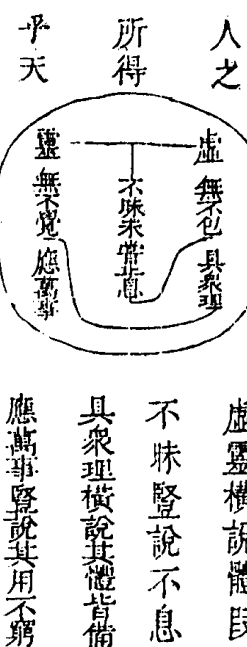 人之
所得
乎天
虛 無不包 具衆理
不昧未嘗息
靈 無不覺 應萬事
虛靈橫說體段
不昧豎說不息
具衆理橫說其體皆備
應萬事豎說其用不窮